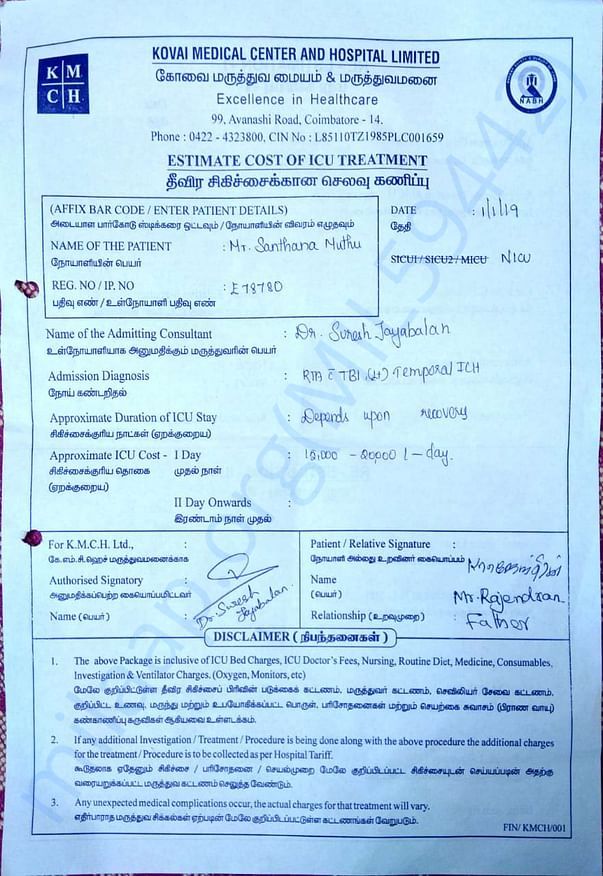 K M
C H
KOVAI MEDICAL CENTER AND HOSPITAL LIMITED
கோவை மருத்துவ மையம் & மருத்துவமனை
Excellence in Healthcare
NABH
99, Avanashi Road, Coimbatore - 14.
Phone : 0422 - 4323800, CIN No : L85110TZ1985PLC001659
ESTIMATE COST OF ICU TREATMENT
தீவிர சிகிச்சைக்கான செலவு கணிப்பு
(AFFIX BAR CODE / ENTER PATIENT DETAILS)
அடையாள பார்கோடு ஸ்டிக்கரை ஒட்டவும் / நோயாளியின் விவரம் எழுதவும்
NAME OF THE PATIENT : Mr. Santhana Muthu
நோயாளியின் பெயர்
REG. NO / IP. NO : E78780
பதிவு எண் / உள்நோயாளி பதிவு எண்
DATE : 1/1/19
தேதி
SICU1 / SICU2 / MICU NICU
Name of the Admitting Consultant : Dr. Suresh Jayabalan
உள்நோயாளியாக அனுமதிக்கும் மருத்துவரின் பெயர்
Admission Diagnosis : RTA c̄ TBI, Temporal ICH
நோய் கண்டறிதல்
Approximate Duration of ICU Stay : Depends upon recovery
சிகிச்சைக்குரிய நாட்கள் (ஏறக்குறைய)
Approximate ICU Cost - I Day : 15,000 - 20,000 / - day.
சிகிச்சைக்குரிய தொகை முதல் நாள்
(ஏறக்குறைய)
II Day Onwards :
இரண்டாம் நாள் முதல்
For K.M.C.H. Ltd., :
கே.எம்.சி.ஹெச் மருத்துவமனைக்காக
Authorised Signatory :
அனுமதிக்கப்பெற்ற கையொப்பமிட்டவர்
Name (பெயர்) : Dr. Suresh Jayabalan
Patient / Relative Signature :
நோயாளி அல்லது உறவினர் கையொப்பம்
Name :
(பெயர்) Mr. Rajendran
Relationship (உறவுமுறை) : Father
DISCLAIMER (நிபந்தனைகள்)
1. The above Package is inclusive of ICU Bed Charges, ICU Doctor's Fees, Nursing, Routine Diet, Medicine, Consumables,
Investigation & Ventilator Charges. (Oxygen, Monitors, etc)
மேலே குறிப்பிட்டுள்ள தீவிர சிகிச்சைப் பிரிவின் படுக்கைக் கட்டணம், மருத்துவர் கட்டணம், செவிலியர் சேவை கட்டணம்,
குறிப்பிட்ட உணவு, மருந்து மற்றும் உபயோகிக்கப்பட்ட பொருள், பரிசோதனைகள் மற்றும் செயற்கை சுவாசம் (பிராண வாயு)
கண்காணிப்பு கருவிகள் ஆகியவை உள்ளடக்கம்.
2. If any additional Investigation / Treatment / Procedure is being done along with the above procedure the additional charges
for the treatment / Procedure is to be collected as per Hospital Tariff.
கூடுதலாக ஏதேனும் சிகிச்சை / பரிசோதனை / செயல்முறை மேலே குறிப்பிடப்பட்ட சிகிச்சையுடன் செய்யப்படின் அதற்கு
வரையறுக்கப்பட்ட மருத்துவ கட்டணம் செலுத்த வேண்டும்.
3. Any unexpected medical complications occur, the actual charges for that treatment will vary.
எதிர்பாராத மருத்துவ சிக்கல்கள் ஏற்படின் மேலே குறிப்பிடப்பட்டுள்ள கட்டணங்கள் வேறுபடும்.
FIN/ KMCH/001